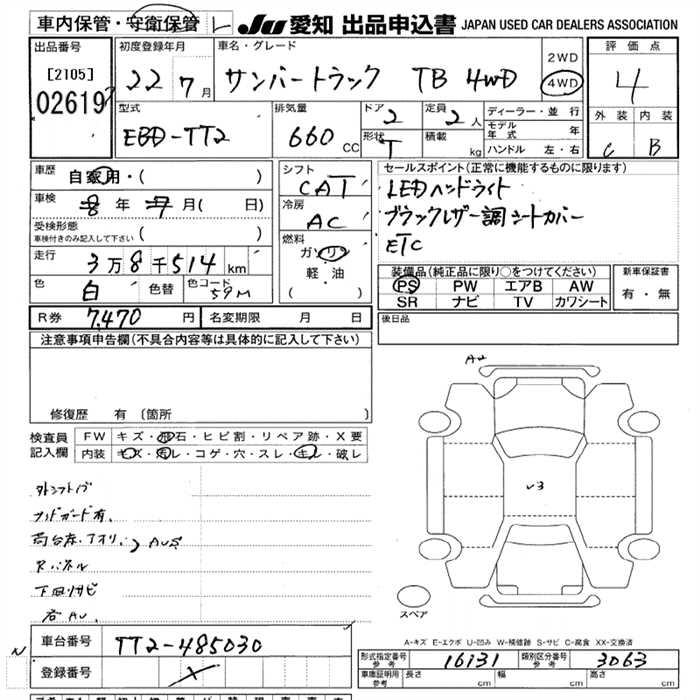 車内保管・守衛保管 L JU 愛知 出品申込書 JAPAN USED CAR DEALERS ASSOCIATION
出品番号 初度登録年月 車名・グレード 2WD 評価点
[2105] 22 7月 サンバートラック TB 4WD 4WD 4
02619
型式 排気量 ドア 2 定員 2人 ディーラー・並行 外装 内装
EBD-TT2 660 CC 形状 T 積載 kg モデル年式 年 C B
ハンドル 左・右
車歴 自家用・( ) シフト CAT セールスポイント(正常に機能するものに限ります)
車検 8年 7月( 日) 冷房 AC LEDヘッドライト
受検形態 車検付きのみ記入して下さい ( ) ブラックレザー調シートカバー
走行 3万8千514km 燃料 ガソリン 軽・油 ( ) ETC
色 白 色替 色コード 59M 装備品(純正品に限り○をつけてください) 新車保証書
PS PW エアB AW 有・無
SR ナビ TV カワシート
R券 7,470円 名変期限 月 日 後日品
注意事項申告欄(不具合内容等は具体的に記入して下さい)
修復歴 有 (箇所 )
A2
検査員 FW キズ・飛石・ヒビ割・リペア跡・X要
記入欄 内装 キズ・汚レ・コゲ・穴・スレ・キレ・破レ
U3
荷台床、アオリ、
Rパネル
下回リサビ
スペア
A-キズ E-エクボ U-凹み W-補修跡 S-サビ C-腐食 XX-交換済
N 車台番号 TT2-485030
登録番号 X
形式指定番号 参考 16131 類別区分番号 参考 3063
車庫証明用 参考 長さ 幅 高さ